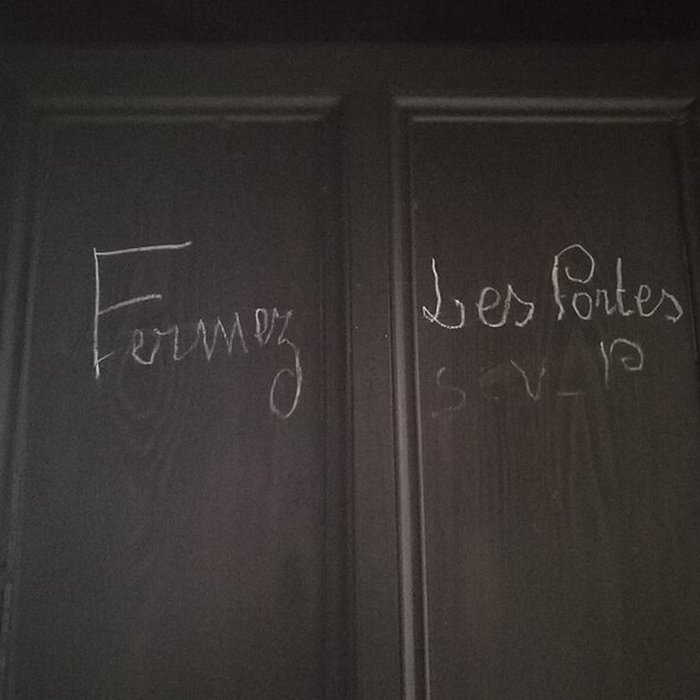 Fermez
Les Portes
s-v-p